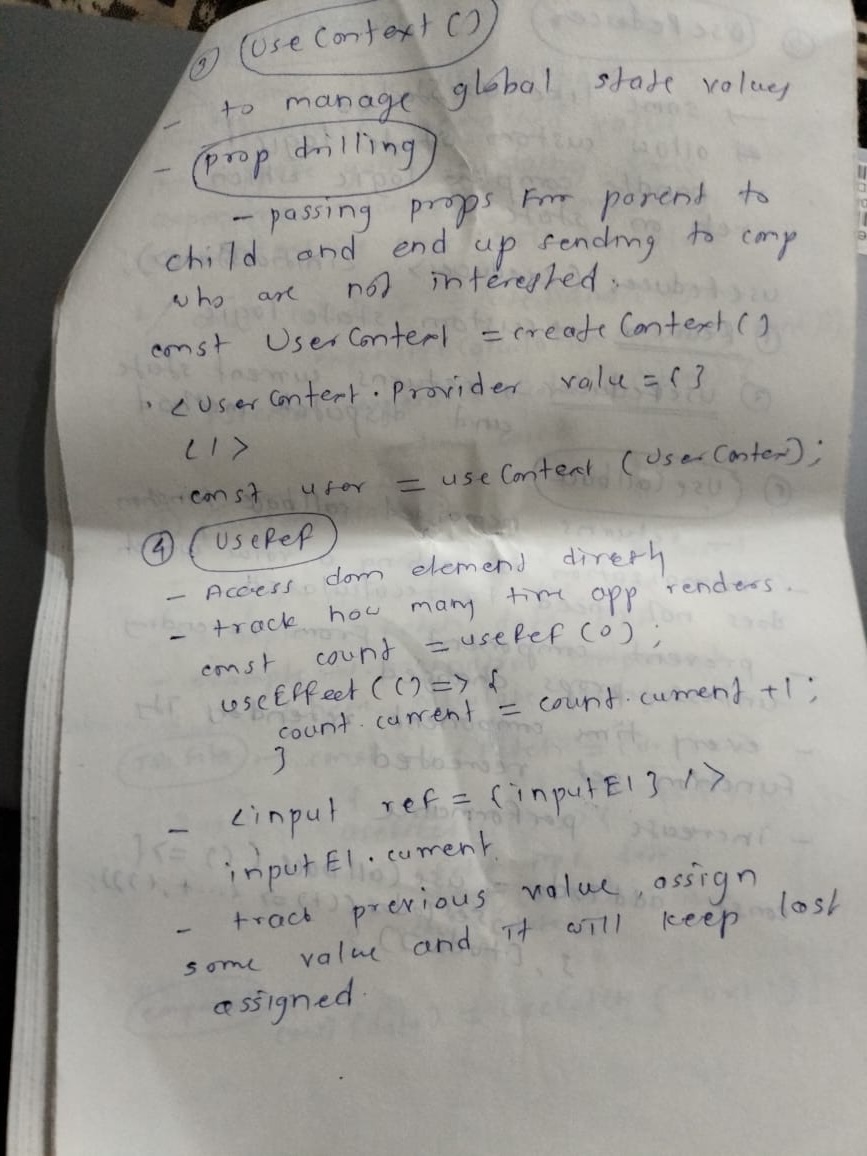 ③ useContext()
- to manage global state values
- prop drilling
- passing props from parent to
child and end up sending to comp
who are not interested.
const UserContext = createContext()
<UserContext.Provider value={}
</>
const user = useContext(UserContext);
④ useRef
- Access dom element directly
- track how many time app renders.
const count = useRef(0);
useEffect(() => {
count.current = count.current +1;
}
- <input ref={inputEl} />
inputEl.current.
- track previous value, assign
some value and it will keep last
assigned.